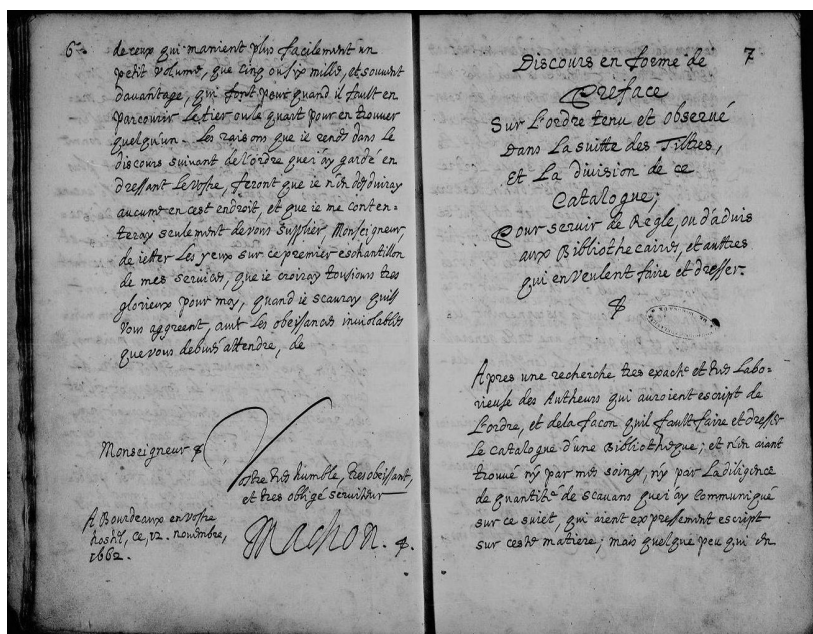 6.
de ceux qui manient plus facilement un
petit volume, que cinq ou six mille, et souvent
davantage, qui sont pour quand il fault en
parcourir le tier ou le quart pour en trouver
quelqu'un. Les raisons que ie rends dans le
discours suivant de l'ordre que i'ay gardé en
dressant le vostre, feront que ie n'en desduiray
aucune en cest endroit, et que ie me conten-
teray seulement de vous supplier Monseigneur,
de ietter les yeux sur ce premier eschantillon
de mes services, que ie croiray tousiours tres
glorieux pour moy, quand ie scauray quils
vous aggreent, avec les obeissances inviolables
que vous debvés attendre, de
Monseigneur
Vostre tres humble, tres obeissant,
et tres obligé serviteur
A Bourdeaux en vostre
hostel, ce, 12. novembre,
1662.
Machon.
7
Discours en forme de
Preface
Sur L'ordre tenu et observé
Dans La suitte des Tiltres,
et La division de ce
Catalogue;
Pour servir de Regle, ou d'advis
aux Bibliothecaires, et aultres
qui en veulent faire et dresser.
Apres une recherche tres exacte et tres labo-
rieuse des Autheurs qui auroient escript de
L'ordre, et de la facon qu'il fault faire et dresser
Le catalogue d'une Bibliotheque; et n'en aiant
trouvé n'y par mes soings, n'y par La diligence
de quantité de scavans que i'ay communiqué
sur ce suiet, qui aient expressement escript
sur ceste matiere; mais quelque peu qui en